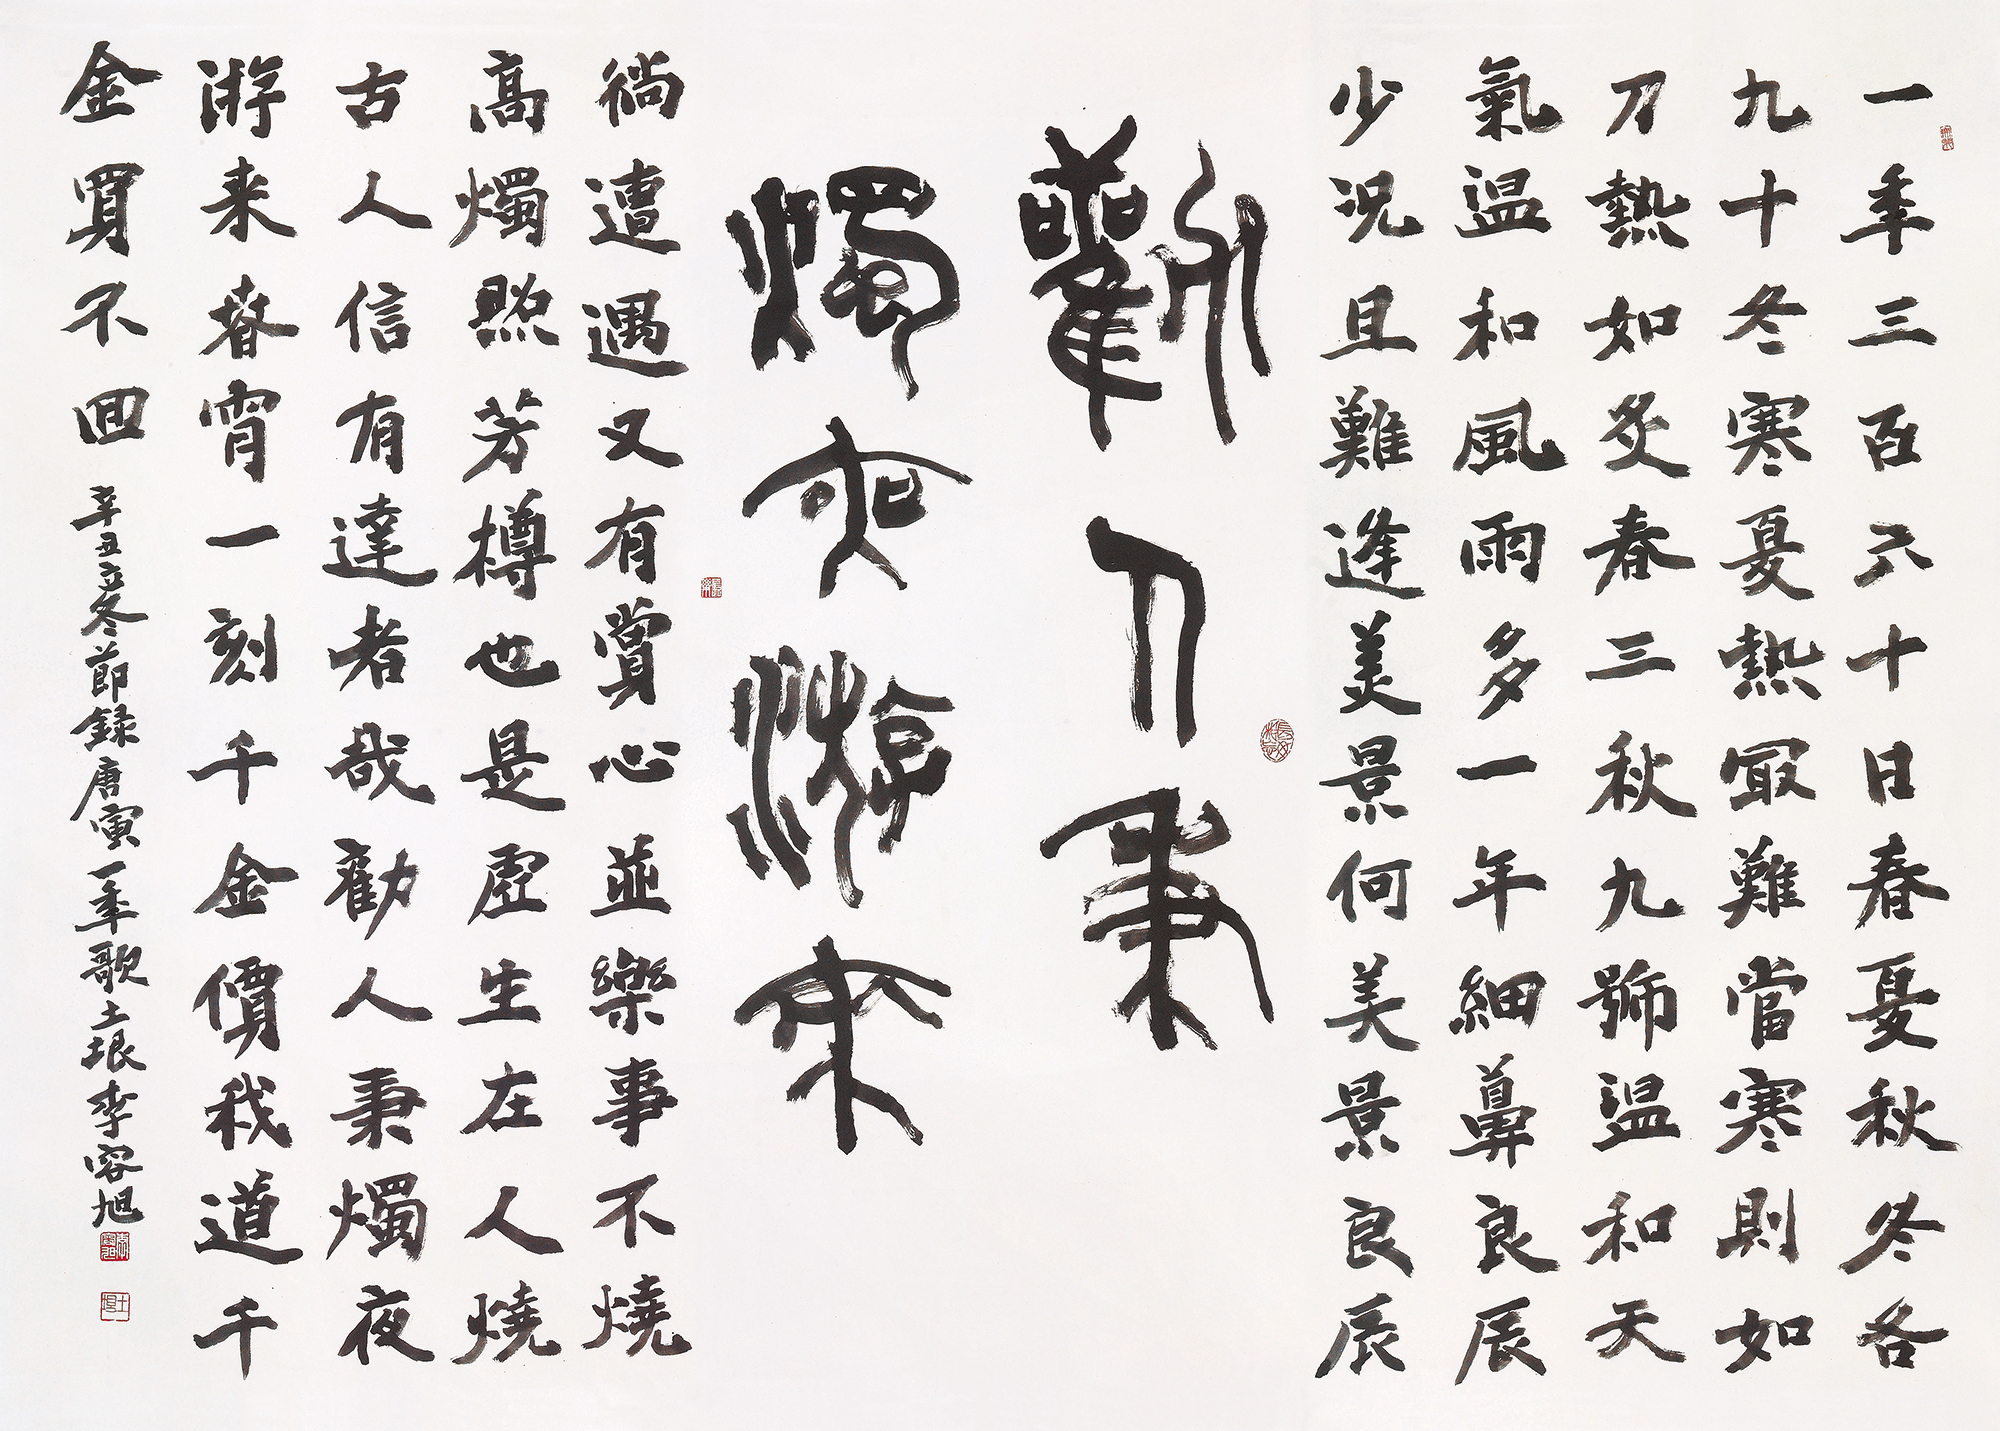 一秊三百六十日春夏秋冬各
九十冬寒夏熱冣難當寒則如
刀熱如炙春三秋九號温和天
氣温和風雨多一年細算良辰
少況且難逢美景何美景良辰
勸人秉
燭夜游來
徜遭遇又有賞心並樂事不燒
高燭照芳樽也是虛生在人燒
古人信有達者哉勸人秉燭夜
游来春宵一刻千金價我道千
金買不回 辛丑立冬節録唐寅一秊歌土垠李容旭